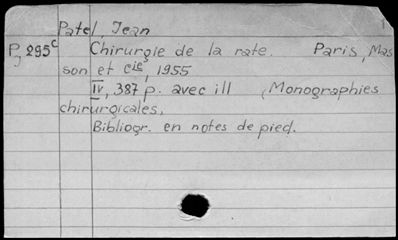 Patel, Jean
PJ 295c Chirurgie de la rate. Paris, Mas
son et Cie, 1955
IV, 387 p. avec ill (Monographies
chirurgicales,
Bibliogr. en notes de pied.